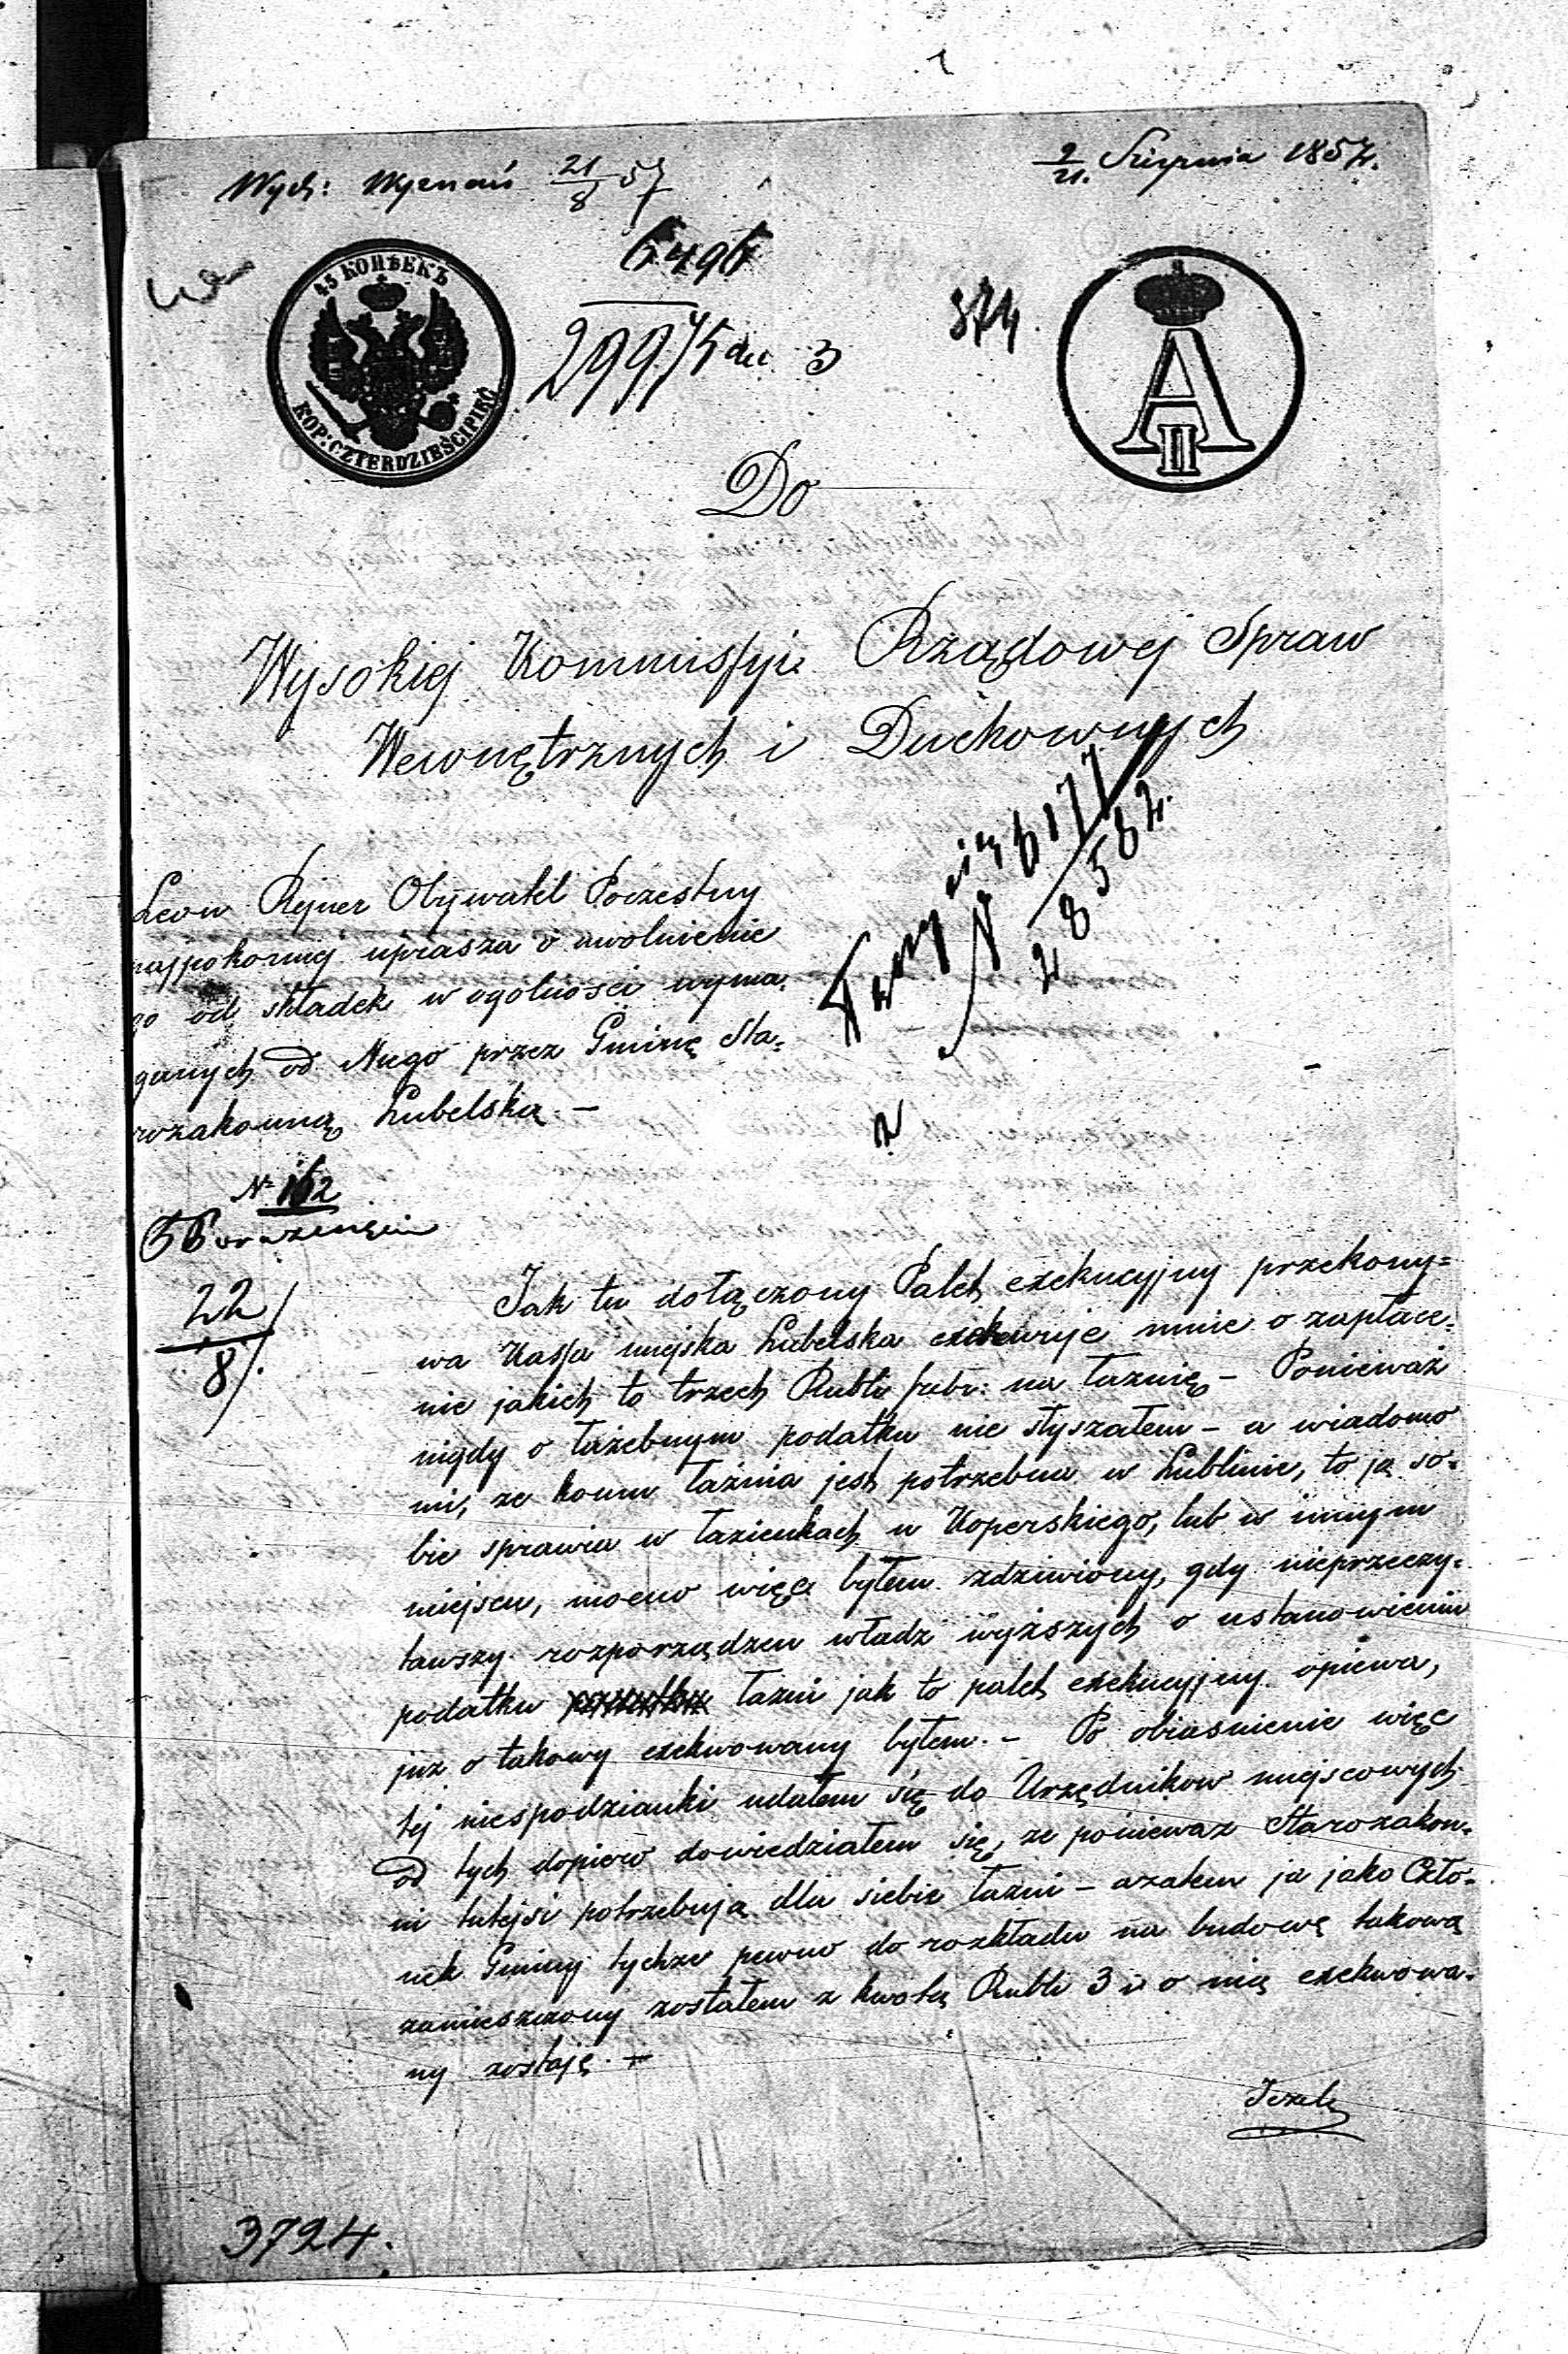 Wych: Wyznań 21/8 57
9/21. Sierpnia 1857.
6496
29975 3
874.
45 КОПѢЕКЪ
KOP: CZTERDZIEŚCI PIĘĆ
A II
Do
Wysokiej Kommissyi Rządowej Spraw
Wewnętrznych i Duchownych
Leon Rejner Obywatel Poczestny
najpokorniej uprasza o uwolnienie
go od składek w ogolności wyma
ganych od Niego przez Gminę Sta=
rozakonną Lubelską. –
N 6177
28582.
№ 162
22/8
Jak tu dołączony Palet exekucyjny przekony=
wa Kassa miejska Lubelska exekwuje mnie o zapłace=
nie jakich to trzech Rubli srbr: na łaznię – Ponieważ
nigdy o łaziebnym podatku nie słyszałem – a wiadomo
mi, ze komu łaźnia jest potrzebna w Lublinie, to ją so=
bie sprawia w łazienkach u Koperskiego, lub w innym
miejscu, mocno więc byłem zdziwiony, gdy nieprzeczy=
tawszy rozporządzeń władz wyższych o ustanowieniu
podatku łazni jak to palet exekucyjny opiewa,
juz o takowy exekwowany byłem. – Po obiasnienie więc
tej niespodzianki udałem się do Urzędnikow miejscowych
od tych dopiero dowiedziałem się, ze poniewaz Starozakon=
ni tutejsi potrzebują dla siebie łazni – azatem ja jako Czło=
nek Gminy tychze pewno do rozkładu na budowę takową
zamieszczony zostałem z kwotą Rubli 3 i o nią exekwowa=
ny zostaję. –
Jezeli
3724.